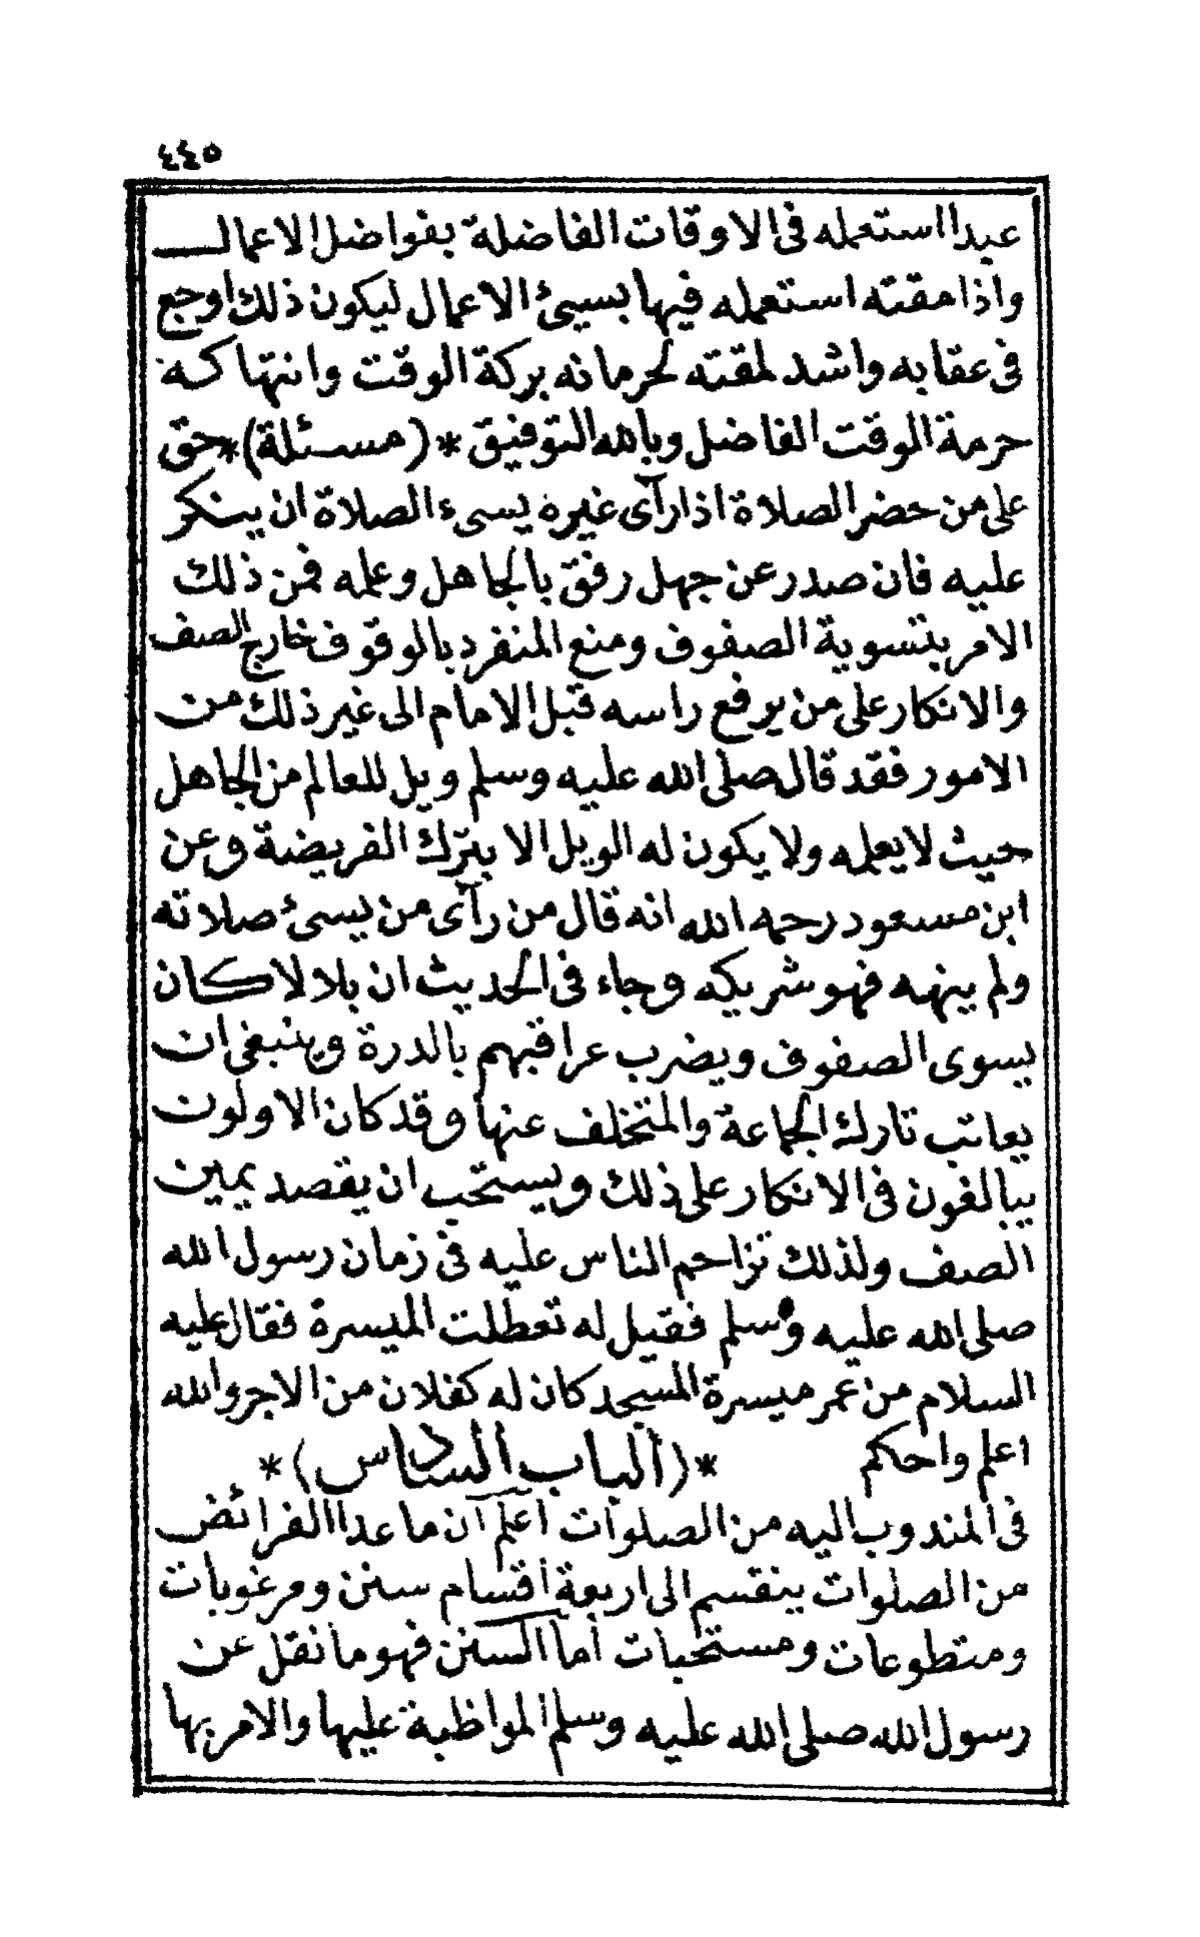 ٤٤٥
عبدا استعمله فى الاوقات الفاضلة بفواضل الاعمال
واذا مقته استعمله فيها بسيئ الاعمال ليكون ذلك اوجع
فى عقابه واشد لمقته لحرمانه بركة الوقت وانتهاكه
حرمة الوقت الفاضل وبالله التوفيق *(مسئلة)* حق
على من حضر الصلاة اذا رآى غيره يسىء الصلاة ان ينكر
عليه فان صدر عن جهل رفق بالجاهل وعلمه فمن ذلك
الامر بتسوية الصفوف ومنع المنفرد بالوقوف خارج الصف
والانكار على من يرفع راسه قبل الامام الى غير ذلك من
الامور فقد قال صلى الله عليه وسلم ويل للعالم من الجاهل
حيث لا يعلمه ولا يكون له الويل الا بترك الفريضة وعن
ابن مسعود رحمه الله انه قال من رآى من يسئ صلاته
ولم ينهه فهو شريكه وجاء فى الحديث ان بلالا كان
يسوى الصفوف ويضرب عراقبهم بالدرة وينبغى ان
يعاتب تارك الجماعة والمتخلف عنها وقد كان الاولون
يبالغون فى الانكار على ذلك ويستحب ان يقصد يمين
الصف ولذلك تزاحم الناس عليه فى زمان رسول الله
صلى الله عليه وسلم فقيل له تعطلت الميسرة فقال عليه
السلام من عمر ميسرة المسجد كان له كفلان من الاجر والله
اعلم واحكم *(الباب السادس)*
فى المندوب اليه من الصلوات اعلم آن ما عدا الفرائض
من الصلوات ينقسم الى اربعة اقسام سنن ومرغوبات
ومتطوعات ومستحبات أما السنن فهو ما نقل عن
رسول الله صلى الله عليه وسلم المواظبة عليها والامر بها